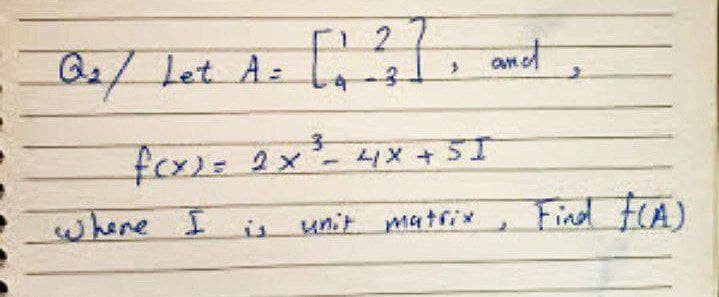 Q2/ Let A = [1 2 4 -3], and,
f(x) = 2x³ - 4x + 5I
where I is unit matrix, Find f(A)